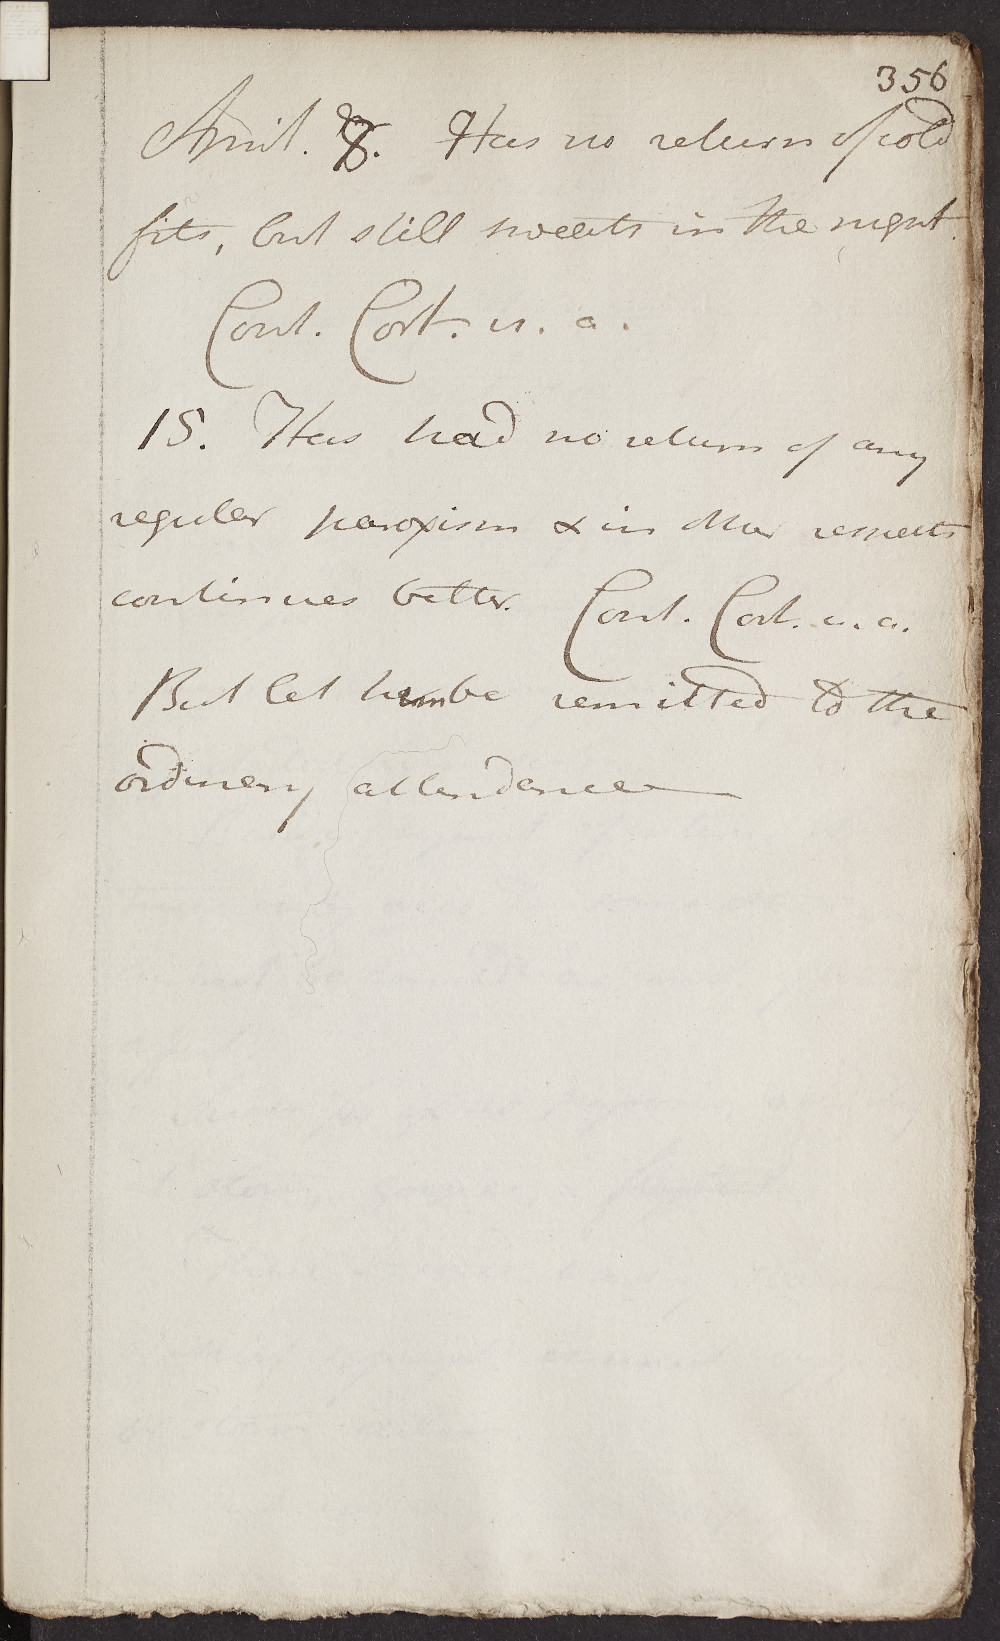 356
April. 8. Has no return of cold
fits, but still sweats in the night.
Cont. Cort. u. a.
15. Has had no return of any
regular paroxism & in other respects
continues better. Cont. Cort. u. a.
But let him be remitted to the
ordinary attendance